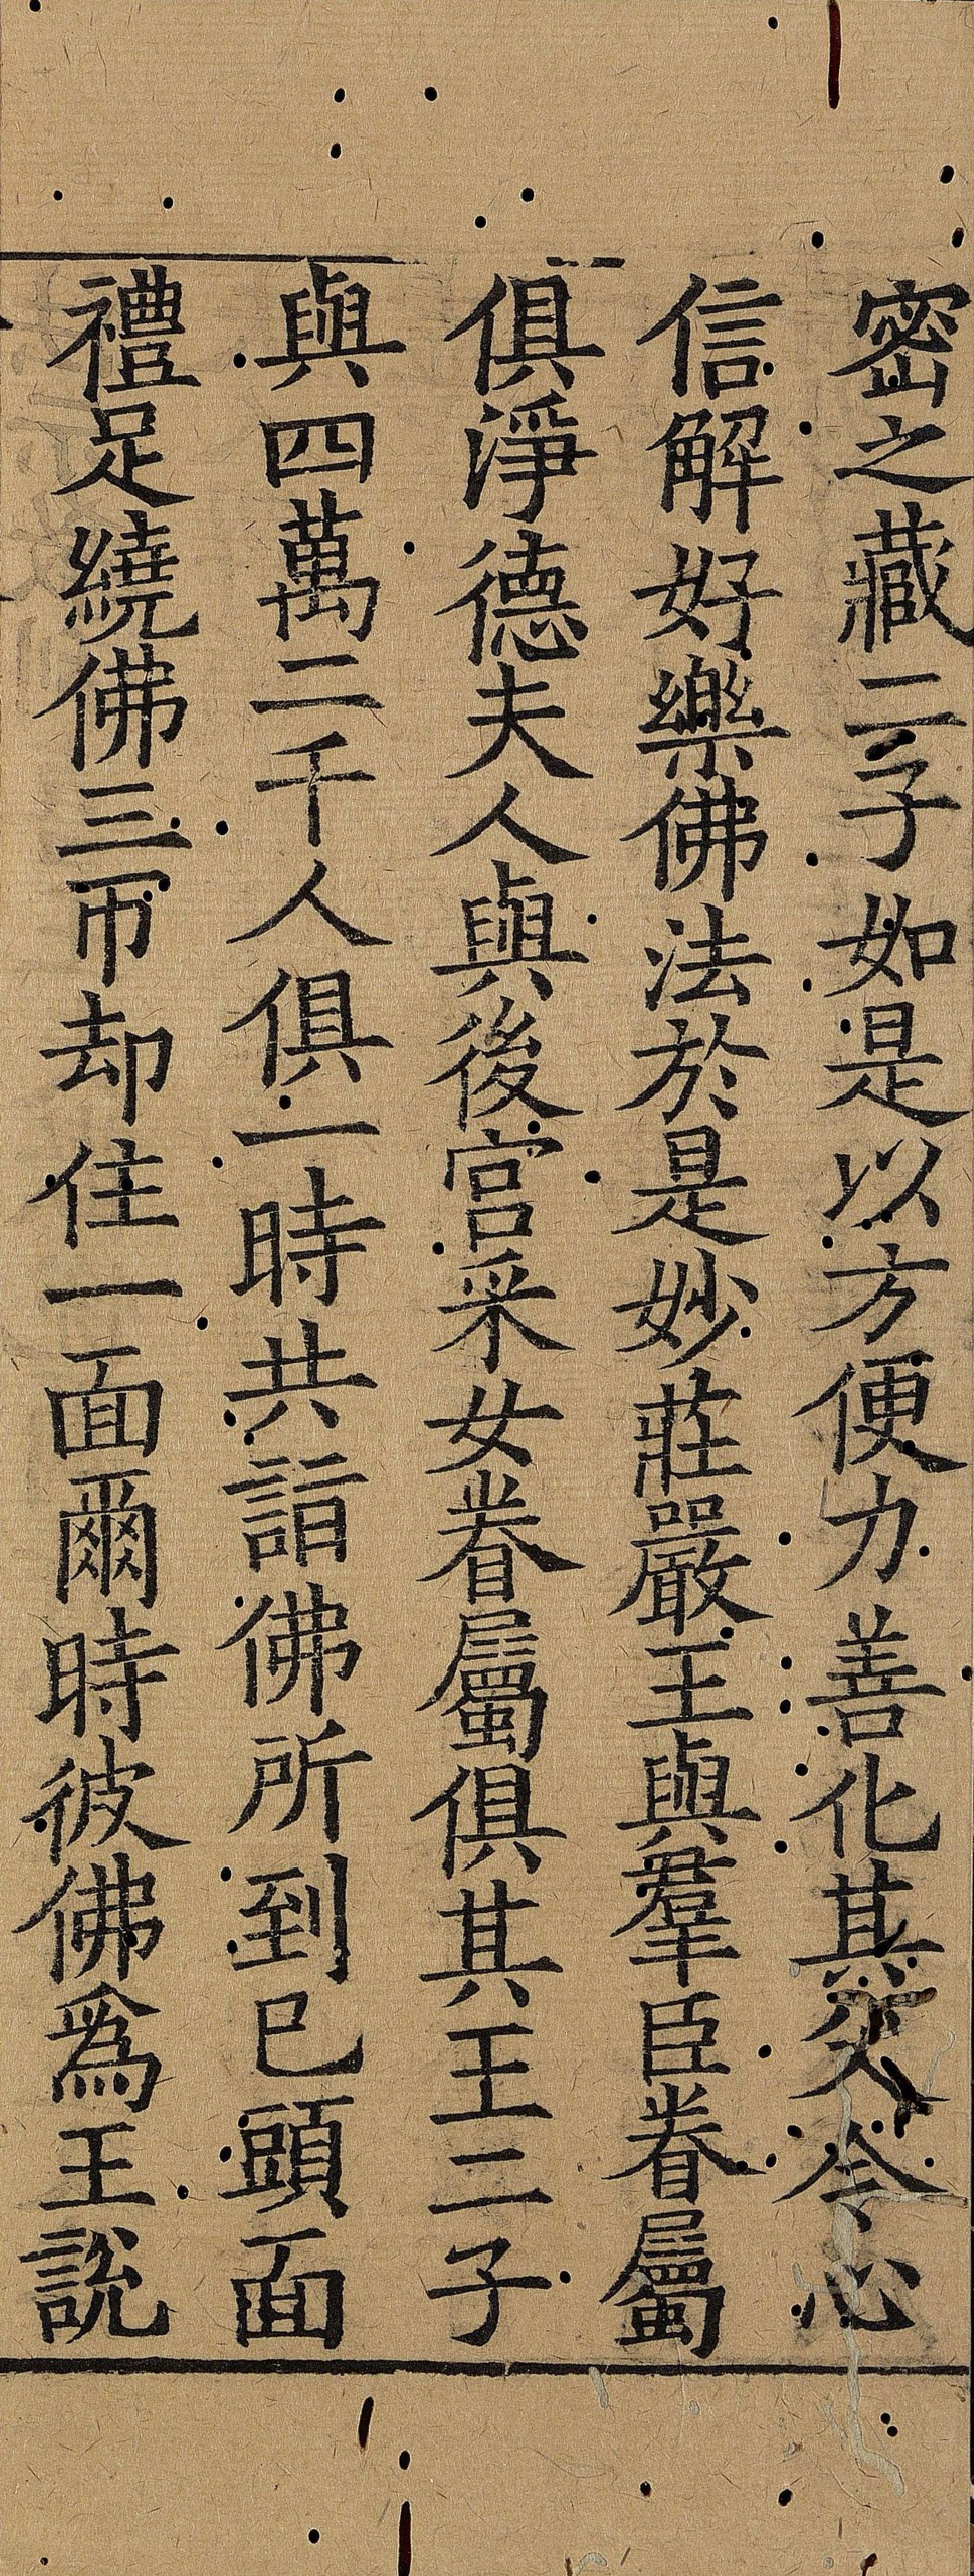 密之藏二子如是以方便力善化其父令心
信解好樂佛法於是妙莊嚴王與羣臣眷屬
俱淨德夫人與後宮采女眷屬俱其王二子
與四萬二千人俱一時共詣佛所到已頭面
禮足繞佛三帀却住一面爾時彼佛爲王說